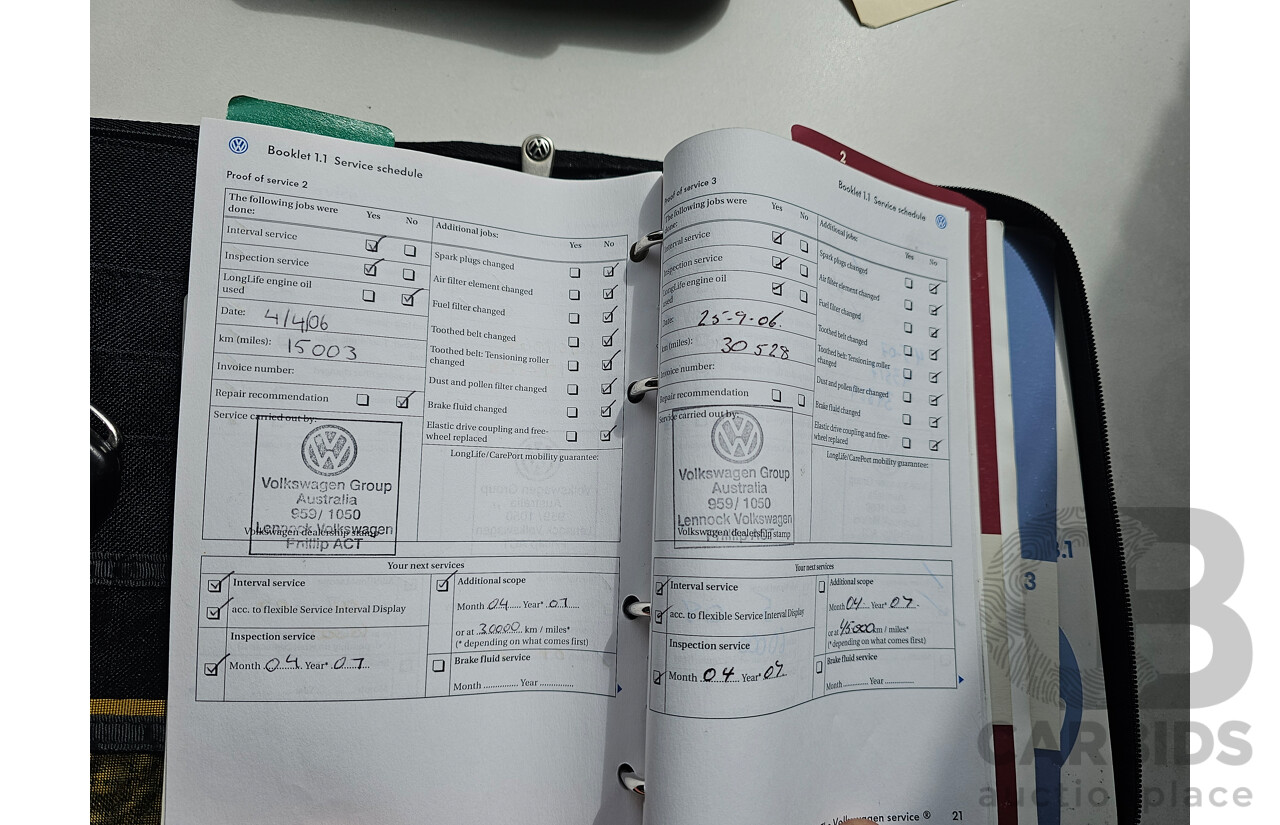 Booklet 1.1 Service schedule
Proof of service 2
The following jobs were
done:
Yes
No
Interval service
Inspection service
LongLife engine oil
used
Date: 4/4/06
km (miles): 15003
Invoice number:
Repair recommendation
Service carried out by:
Volkswagen Group
Australia
959/ 1050
Lennock Volkswagen
Phillip ACT
Volkswagen dealership stamp
Additional jobs:
Yes
No
Spark plugs changed
Air filter element changed
Fuel filter changed
Toothed belt changed
Toothed belt: Tensioning roller
changed
Dust and pollen filter changed
Brake fluid changed
Elastic drive coupling and free-
wheel replaced
LongLife/CarePort mobility guarantee:
Your next services
Interval service
acc. to flexible Service Interval Display
Inspection service
Month 04 Year* 07
Additional scope
Month 04 Year* 07
or at 30000 km / miles*
(* depending on what comes first)
Brake fluid service
Month .............. Year ..............
2
Booklet 1.1 Service schedule
Proof of service 3
The following jobs were
done:
Yes
No
Interval service
Inspection service
LongLife engine oil
used
Date: 25-9-06.
km (miles): 30528
Invoice number:
Repair recommendation
Service carried out by:
Volkswagen Group
Australia
959/ 1050
Lennock Volkswagen
Volkswagen dealership stamp
Additional jobs:
Yes
No
Spark plugs changed
Air filter element changed
Fuel filter changed
Toothed belt changed
Toothed belt: Tensioning roller
changed
Dust and pollen filter changed
Brake fluid changed
Elastic drive coupling and free-
wheel replaced
LongLife/CarePort mobility guarantee:
Your next services
Interval service
acc. to flexible Service Interval Display
Inspection service
Month 04 Year* 07
Additional scope
Month 04 Year* 07.
or at 45000 km / miles*
(* depending on what comes first)
Brake fluid service
Month .............. Year ..............
service ® 21
3.1
3
CARBIDS
auction place